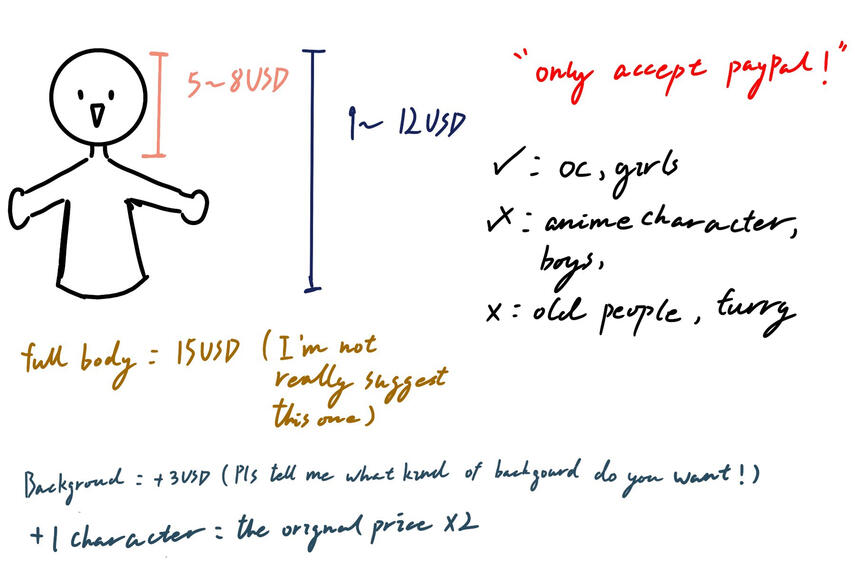 5~8USD
9~12USD
"only accept paypal!"
✓: oc, girls
✓x: anime character,
boys,
x: old people, furry
full body = 15USD (I'm not
really suggest
this one)
Backgroud = +3USD (Pls tell me what kind of backgourd do you want!)
+1 character = the orignal price x2